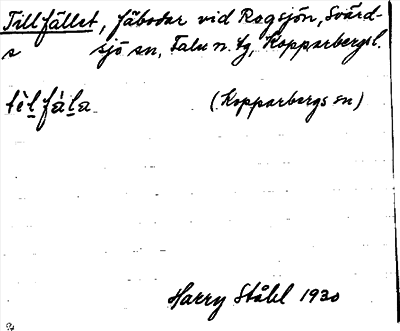 Tillfället, fäbodar vid Rogsjön, Svärd-
s sjö sn, Falu n. tg, Kopparbergs l.
tèlfàla (Kopparbergs sn)
Harry Ståhl 1930